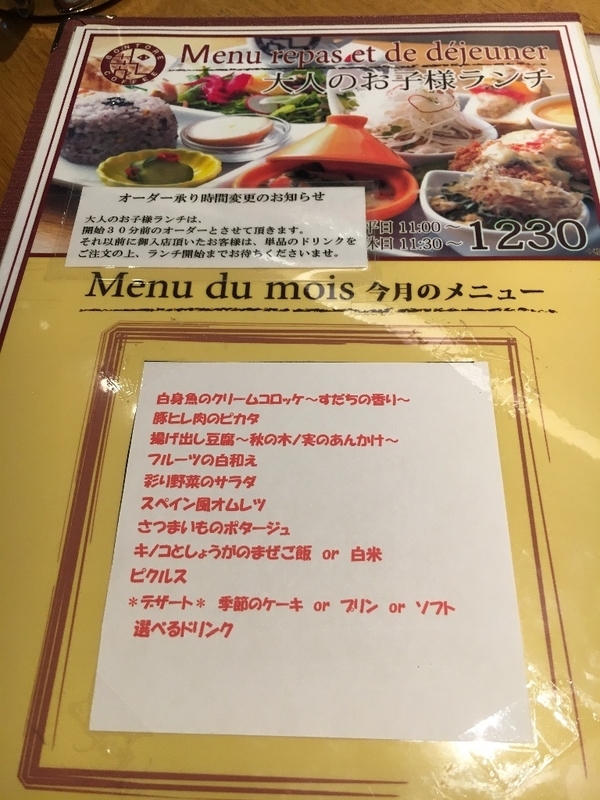 BONTORE COFFEE
Menu repas et de déjeuner
大人のお子様ランチ
オーダー承り時間変更のお知らせ
大人のお子様ランチは、
開始30分前のオーダーとさせて頂きます。
それ以前に御入店頂いたお客様は、単品のドリンクを
ご注文の上、ランチ開始までお待ちくださいませ。
平日 11:00～
休日 11:30～
1230
Menu du mois 今月のメニュー
白身魚のクリームコロッケ～すだちの香り～
豚ヒレ肉のピカタ
揚げ出し豆腐～秋の木ノ実のあんかけ～
フルーツの白和え
彩り野菜のサラダ
スペイン風オムレツ
さつまいものポタージュ
キノコとしょうがのまぜご飯 or 白米
ピクルス
＊デザート＊ 季節のケーキ or プリン or ソフト
選べるドリンク